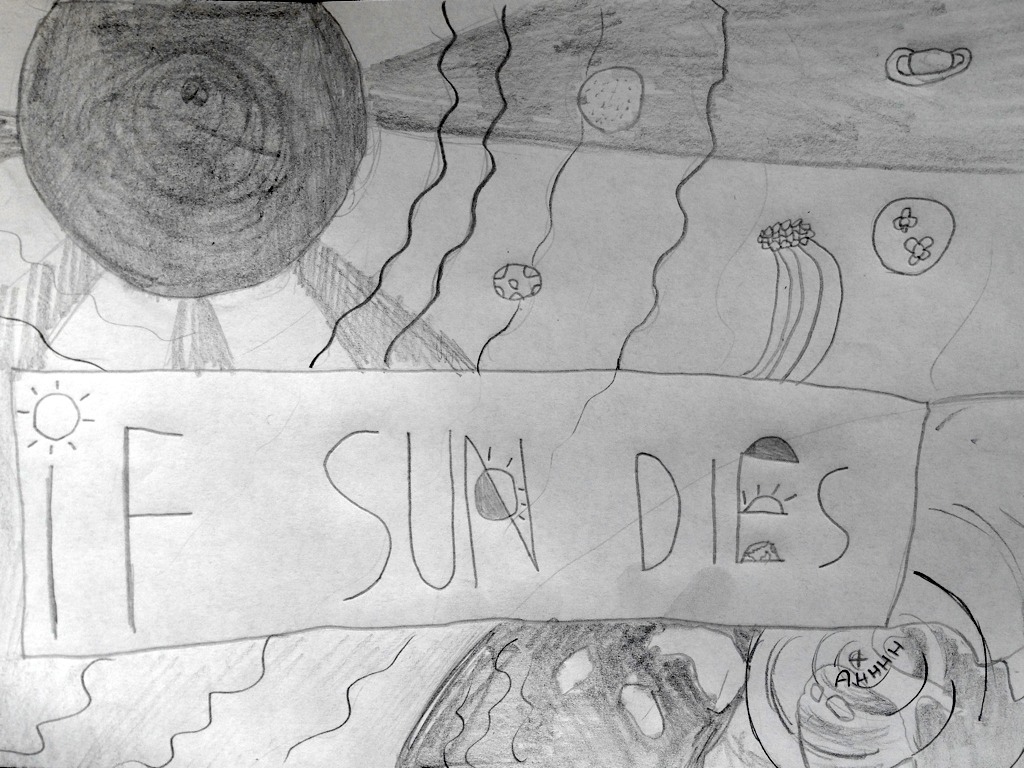 IF SUN DIES
AHHHH